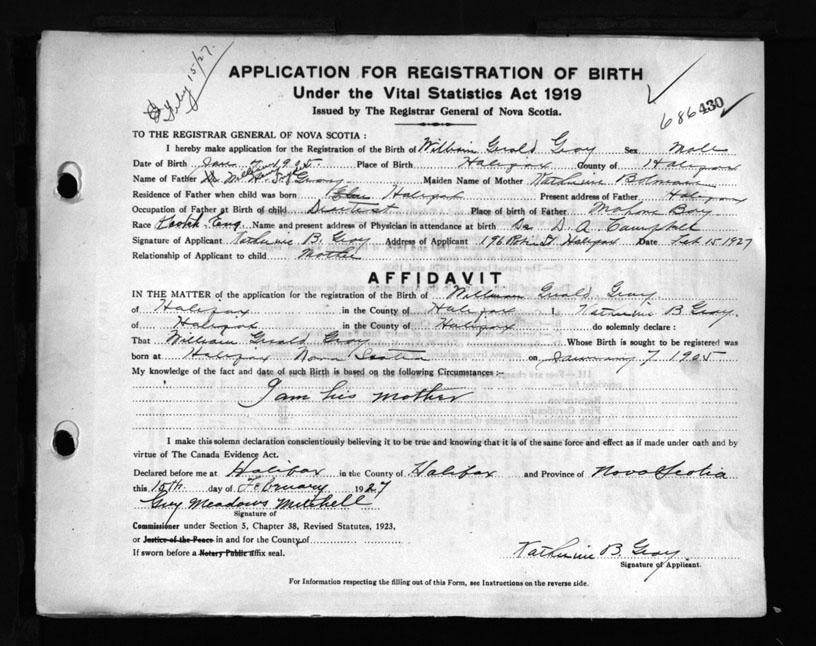 Feby 15/27.
APPLICATION FOR REGISTRATION OF BIRTH
Under the Vital Statistics Act 1919
Issued by The Registrar General of Nova Scotia.
686430
TO THE REGISTRAR GENERAL OF NOVA SCOTIA :
I hereby make application for the Registration of the Birth of William Gerald Gray Sex Male
Date of Birth Jan 1905. Place of Birth Halifax County of Halifax
Name of Father Gray Maiden Name of Mother Katherine
Residence of Father when child was born Halifax Present address of Father Halifax
Occupation of Father at Birth of child Place of birth of Father Mahone Bay
Race Eng. Name and present address of Physician in attendance at birth Dr. D. A. Campbell
Signature of Applicant Katherine B. Gray Address of Applicant 196 St Halifax Date Feb 15 1927
Relationship of Applicant to child Mother
AFFIDAVIT
IN THE MATTER of the application for the registration of the Birth of William Gerald Gray
of Halifax in the County of Halifax I, Katherine B. Gray.
of Halifax in the County of Halifax do solemnly declare :
That William Gerald Gray Whose Birth is sought to be registered was
born at Halifax Nova Scotia on January 7 1905
My knowledge of the fact and date of such Birth is based on the following Circumstances :-
I am his mother
I make this solemn declaration conscientiously believing it to be true and knowing that it is of the same force and effect as if made under oath and by
virtue of The Canada Evidence Act.
Declared before me at Halifax in the County of Halifax and Province of Nova Scotia
this 15th. day of February 1927
Guy Meadows Mitchell
Signature of
Commissioner under Section 5, Chapter 38, Revised Statutes, 1923,
or Justice of the Peace in and for the County of
If sworn before a Notary Public affix seal.
Katherine B. Gray
Signature of Applicant.
For Information respecting the filling out of this Form, see Instructions on the reverse side.